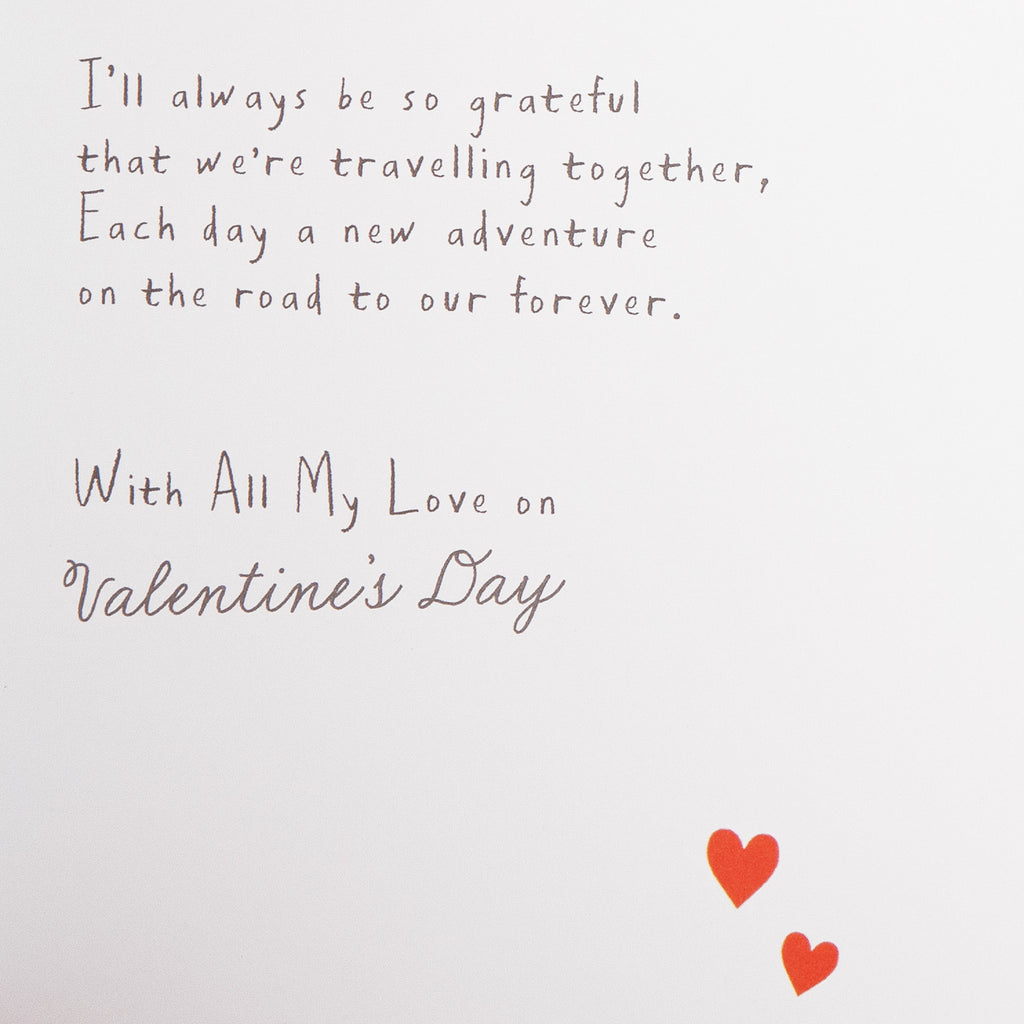 I'll always be so grateful
that we're travelling together,
Each day a new adventure
on the road to our forever.
With All My Love on
Valentine's Day